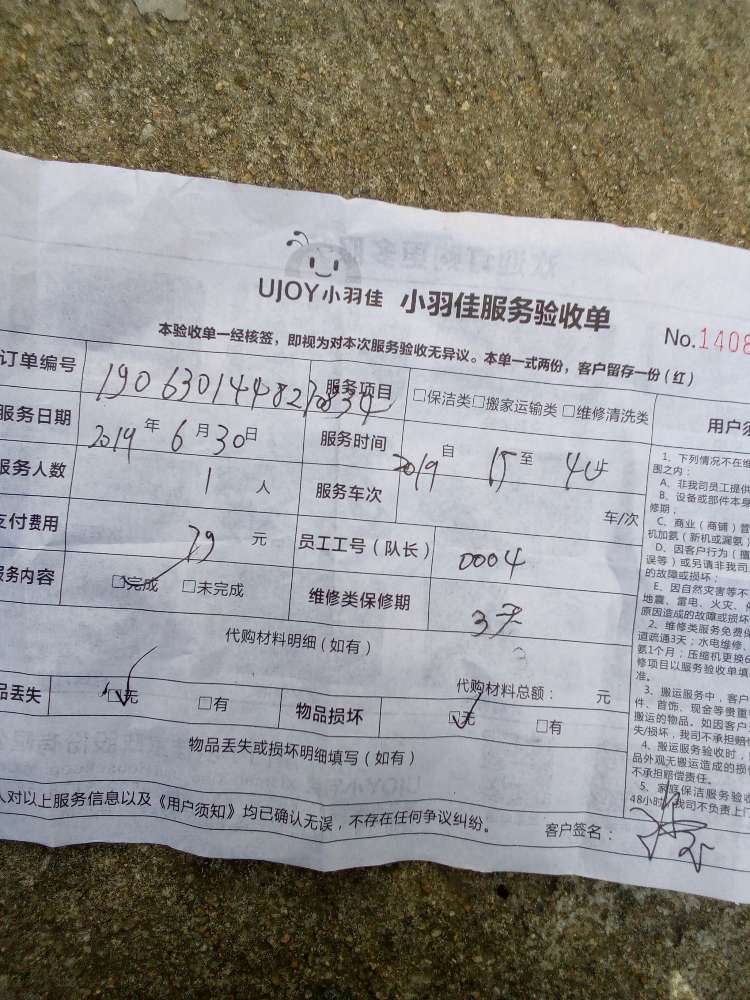 UJOY小羽佳 小羽佳服务验收单
No.1408
本验收单一经核签，即视为对本次服务验收无异议。本单一式两份，客户留存一份（红）
订单编号 服务项目 □保洁类□搬家运输类 □维修清洗类
服务日期 2019年6月30日 服务时间 2019自 15至 40止
服务人数 1人 服务车次 车/次
支付费用 79元 员工工号（队长） 0004
服务内容 □完成 □未完成 维修类保修期 3天
代购材料明细（如有）
代购材料总额： 元
品丢失 □无 □有 物品损坏 □无 □有
物品丢失或损坏明细填写（如有）
人对以上服务信息以及《用户须知》均已确认无误，不存在任何争议纠纷。 客户签名：
用户须
1、下列情况不在维
围之内：
A、非我司员工提供
B、设备或部件本身
修期；
C、商业（商铺）营
机加氨（新机或漏氨）
D、因客户行为（擅
误等）或另请非我司
的故障或损坏；
E、因自然灾害等不
地震、雷电、火灾、
原因造成的故障或损坏
2、维修类服务免费保
道疏通3天；水电维修、
氨1个月；压缩机更换6
修项目以服务验收单填
准。
3、搬运服务中，客户
件、首饰、现金等贵重
搬运的物品。如因客户
失/损坏，我司不承担赔
4、搬运服务验收时，
品外观无搬运造成的损
不承担赔偿责任。
5、家庭保洁服务验收
48小时，我司不负责上门